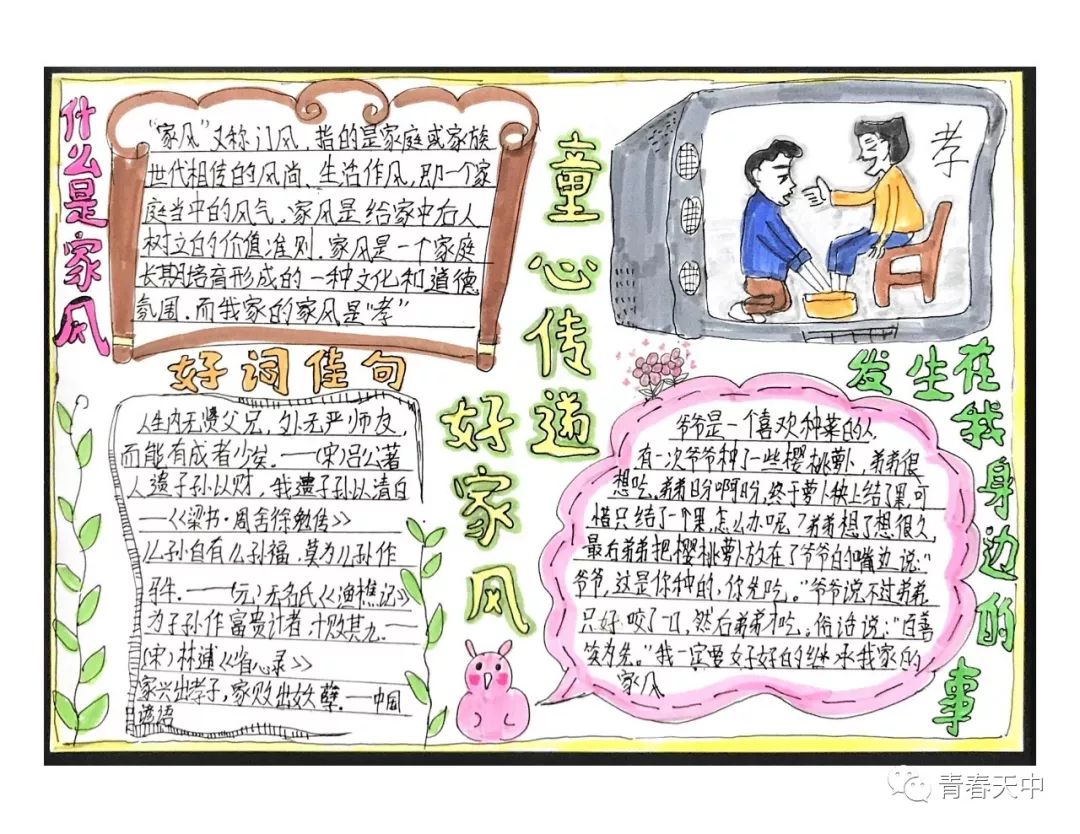 什么是家风
"家风"又称门风，指的是家庭或家族
世代相传的风尚、生活作风，即一个家
庭当中的风气。家风是给家中后人
树立的价值准则.家风是一个家庭
长期培育形成的一种文化和道德
氛围.而我家的家风是"孝"
好词佳句
人生内无贤父兄，外无严师友，
而能有成者少矣.——(宋)吕公著
人遗子孙以财，我遗子孙以清白
——《梁书·周舍徐勉传》
儿孙自有儿孙福，莫为儿孙作
马牛.——(元)无名氏《渔樵记》
为子孙作富贵计者，十败其九.——
(宋)林逋《省心录》
家兴出孝子，家败出妖孽.——中国
谚语
童心传递
好家风
孝
发生在我身边的事
爷爷是一个喜欢种菜的人.
有一次爷爷种了一些樱桃萝卜，弟弟很
想吃.弟弟盼啊盼，终于萝卜秧上结了果，可
惜只结了一个果，怎么办呢？弟弟想了想很久，
最后弟弟把樱桃萝卜放在了爷爷的嘴边说："
爷爷，这是你种的，你先吃。"爷爷说不过弟弟
只好咬了一口，然后弟弟才吃。俗话说："百善
孝为先。"我一定要好好的继承我家的
家风
青春天中